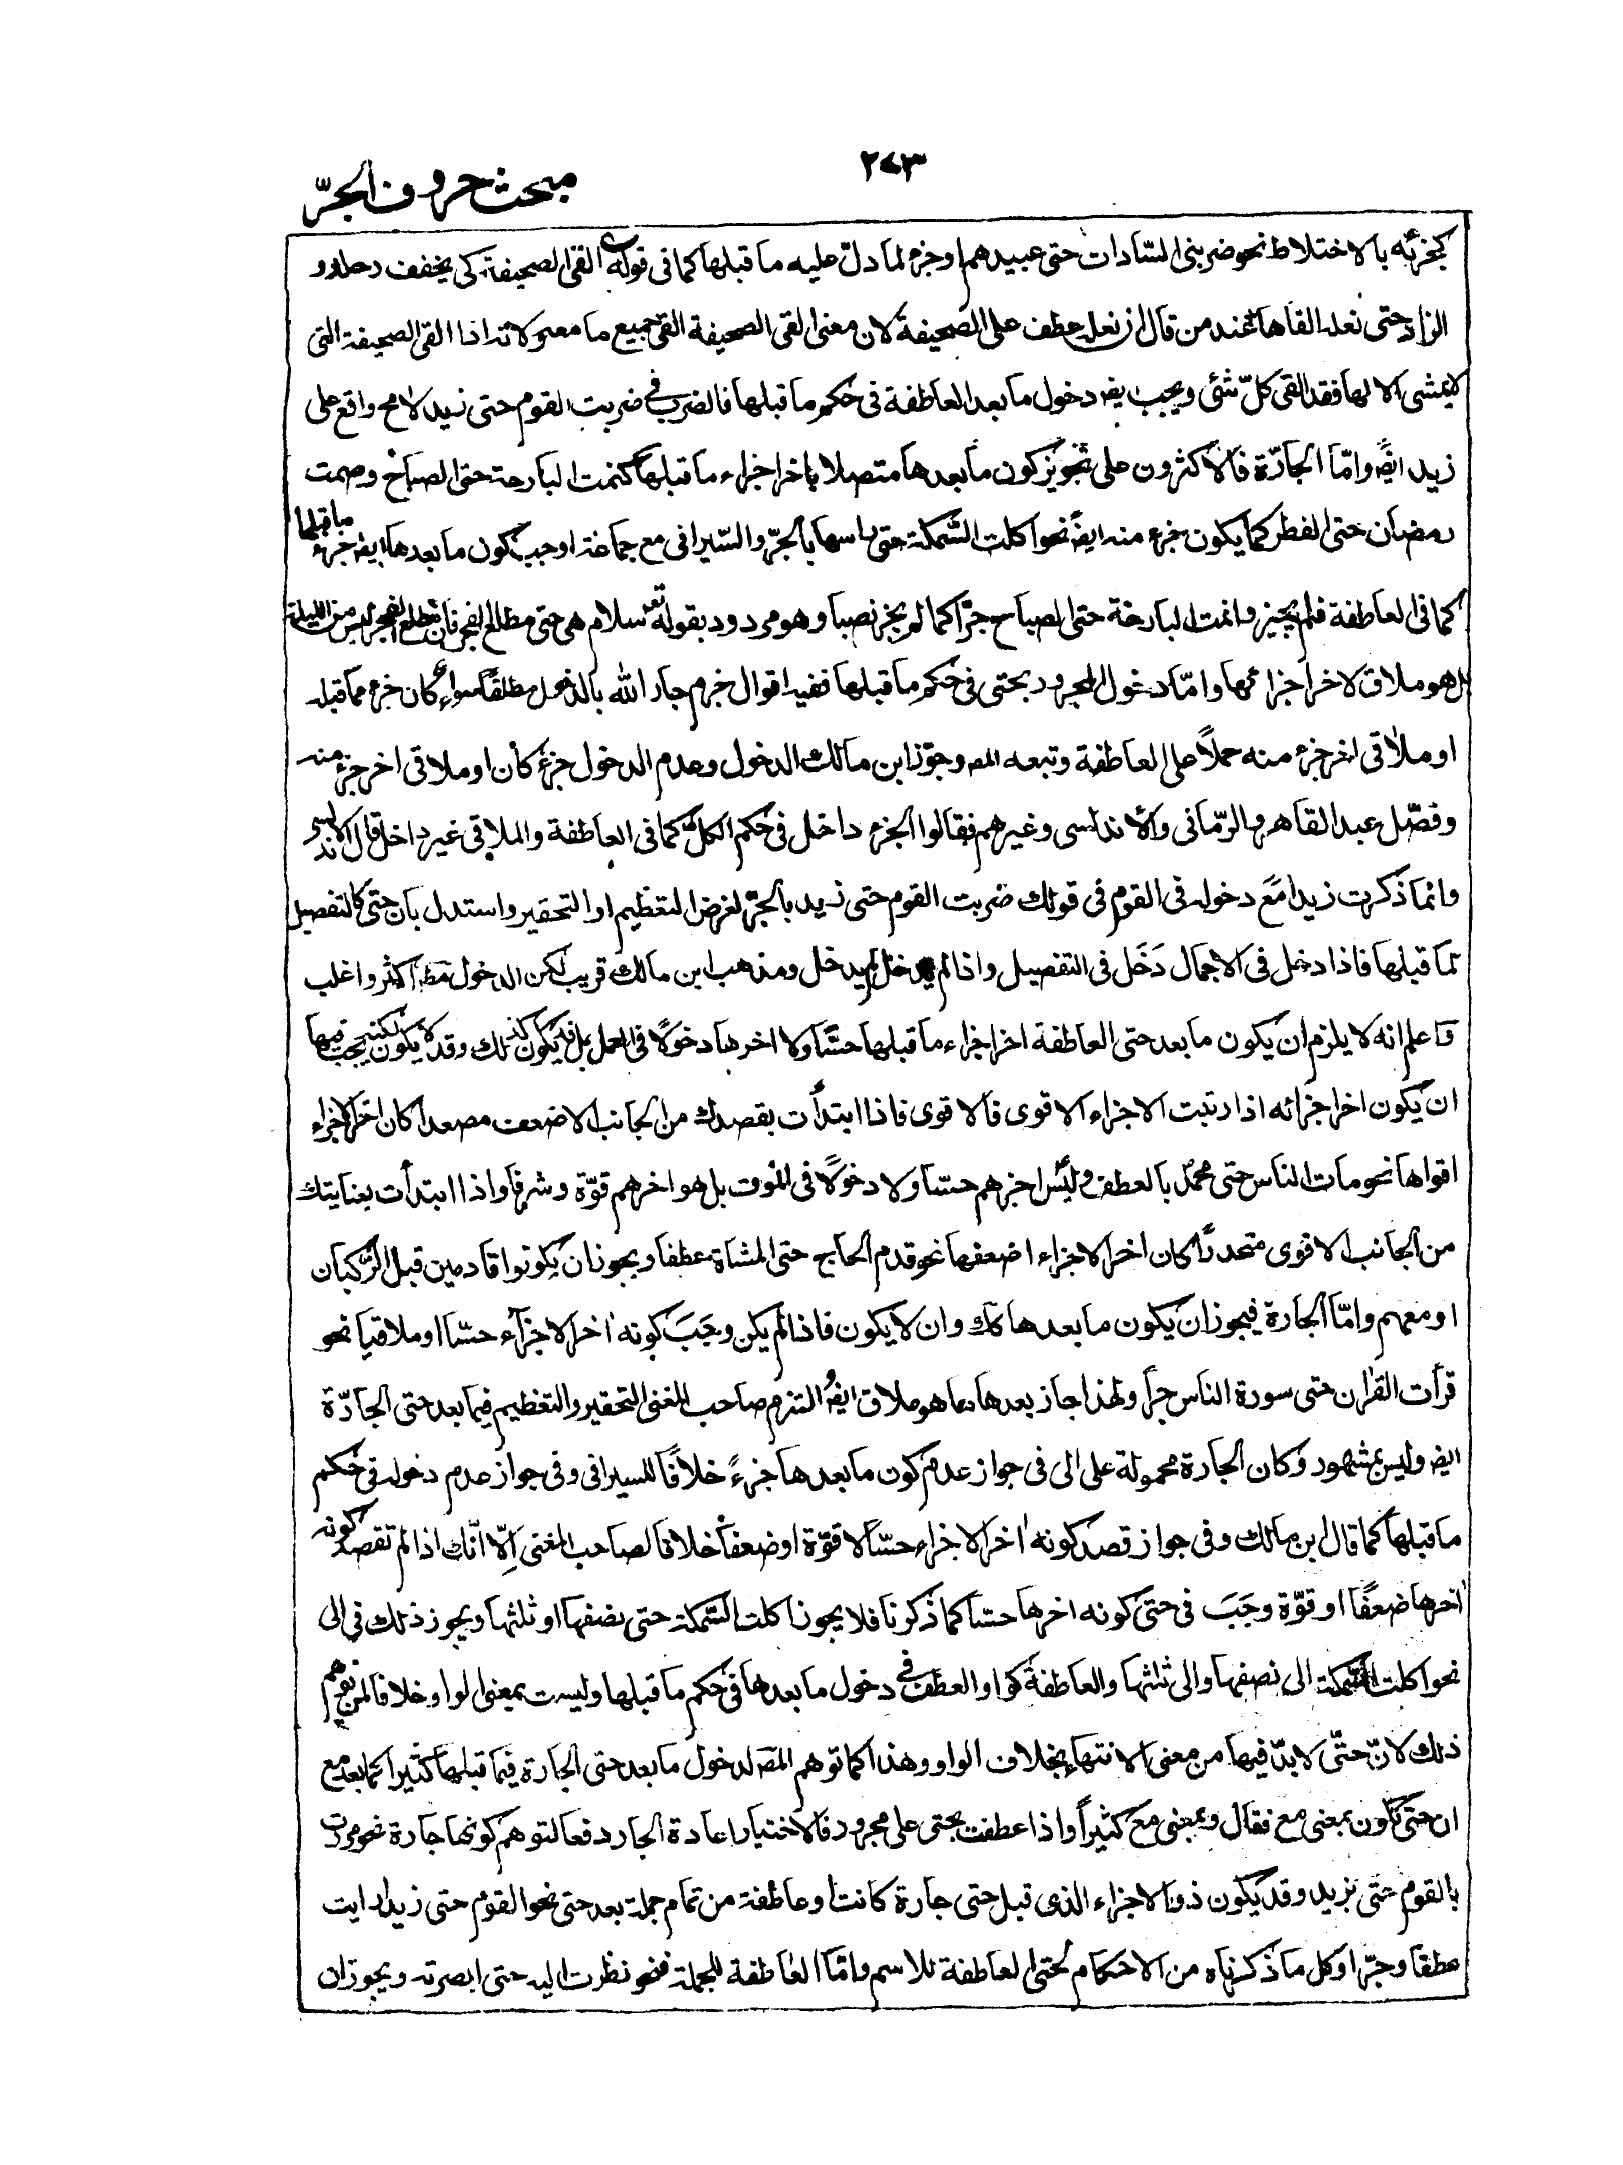 ٢٧٣
مبحث حروف الجرّ
كجزئه بالاختلاط نحو ضربنى السّادات حتى عبيدهم او جزء لما دلّ عليه ما قبلها كما فى قوله ع القى الصحيفة كى يخفف رحله و
الزاد حتى نعله القاها عند من قال ان نعله عطف على الصحيفة لان معنى القى الصحيفة القى جميع ما معه لانه اذا القى الصحيفة التى
لا يمشى الا لها فقد القى كلّ شئى و يجب ايضا دخول ما بعد العاطفة فى حكم ما قبلها فالضرب فى ضربت القوم حتى زيدا لامح واقع على
زيد ايضً وامّا الجارّة فالاكثرون على تجويز كون ما بعدها متصلا باخر اجزاء ما قبلها كنمت البارحة حتى الصباح وصمت
رمضان حتى الفطر كما يكون جزء منه ايضً نحو اكلت السّمكة حتى راسها بالجرّ والسّيرافى مع جماعة اوجب كون ما بعدها ايضا جزء ما قبلها
كما فى العاطفة فلم يجيزوا نمت البارحة حتى الصباح جرّا كما لم يجز نصبا وهو مردود بقوله تعـ سلام هى حتى مطلع الفجر فان مطلع الفجر ليس من الليلة
بل هو ملاق لاخر اجزائها وامّا دخول المجرور بحتى فى حكم ما قبلها ففيه اقوال جزم جار الله بالدخول مطلقاً سواء كان جزء مما قبله
او ملاقى اخر جزء منه حملاً على العاطفة وتبعه المصـ وجوّز ابن مالك الدخول وعدم الدخول جزء كان او ملاقى اخر جزء منه
وفصّل عبد القاهر والرّمانى والاندلسى وغيرهم فقالوا الجزء داخل فى حكم الكلّ كما فى العاطفة والملاقى غير داخل قال الاندلسى
وانما ذكرت زيدا مع دخوله فى القوم فى قولك ضربت القوم حتى زيد بالجرّ لغرض التعظيم او التحقير واستدل بان حتى كالتفصيل
لما قبلها فاذا دخل فى الاجمال دَخَل فى التفصيل واذا لم يدخل لم يدخل ومذهب ابن مالك قريب لكن الدخول مطـ اكثر واغلب
واعلم انه لا يلزم ان يكون ما بعد حتى العاطفة اخر اجزاء ما قبلها حسّا ولا اخرها دخولًا فى العمل بل انه يكون كذلك وقد لا يكون لكنه يجب فيها
ان يكون اخر اجزائه اذا رتبت الاجزاء الاقوى فالاقوى فاذا ابتدأت بقصدك من الجانب الاضعف مصعدا كان اخر الاجزاء
اقواها نحو مات الناس حتى محمدٌ بالعطف وليس اخرهم حسّا ولا دخولًا فى الموت بل هو اخرهم قوّة وشرفا واذا ابتدأت بعنايتك
من الجانب الاقوى منحدرًا كان اخر الاجزاء اضعفها نحو قدم الحاج حتى المشاة عطفا ويجوز ان يكونوا قادمين قبل الرّكبان
او معهم وامّا الجارة فيجوز ان يكون ما بعدها كذلك وان لا يكون فاذا لم يكن وجَبَ كونه اخر الاجزاء حسّا او ملاقيا نحو
قرأت القرٰان حتى سورة الناس جرّا ولهذا جاز بعدها ما هو ملاق ايضً التزم صاحب المغنى التحقير والتعظيم فيما بعد حتى الجارّة
ايضـ وليس بمشهود وكان الجارة محمولة على الى فى جواز عدم كون ما بعدها جزءً خلافًا للسيرافى وفى جواز عدم دخوله فى حكم
ما قبلها كما قال ابن مالك وفى جواز قصد كونه اخر الاجزاء حسّا لا قوّة او ضعفاً خلافا لصاحب المغنى اِلّا انّك اذا لم تقصد كونه
اخرها ضعفًا او قوّة وجَبَ فى حتى كونه اخرها حسّا كما ذكرنا فلا يجوز اكلت السّمكة حتى نصفها او ثلثها ويجوز ذلك فى الى
نحو اكلت السّمكة الى نصفها والى ثلثها والعاطفة كواو العطف فى دخول ما بعدها فى حكم ما قبلها وليست بمعنى الواو خلافا لمن توهم
ذلك لانّ حتّى لا بدّ فيها من معنى الانتهاء بخلاف الواو وهذا كما توهم المصـ لدخول ما بعد حتى الجارة فيما قبلها كثيرا كما بعد مع
ان حتى تكون بمعنى مع فقال وبمعنى مع كثيراً واذا عطفت بحتى على مجرود فالاختيار اعادة الجار دفعا لتوهم كونها جارة نحو مررت
بالقوم حتى بزيد وقد يكون ذو الاجزاء الذى قبل حتى جارة كانت او عاطفة من تمام جملة بعد حتى نحو القوم حتى زيدا رايت
عطفا وجرّا وكل ما ذكرناه من الاحكام لحتى العاطفة للاسم وامّا العاطفة للجملة فنحو نظرت اليه حتى ابصرته ويجوز ان